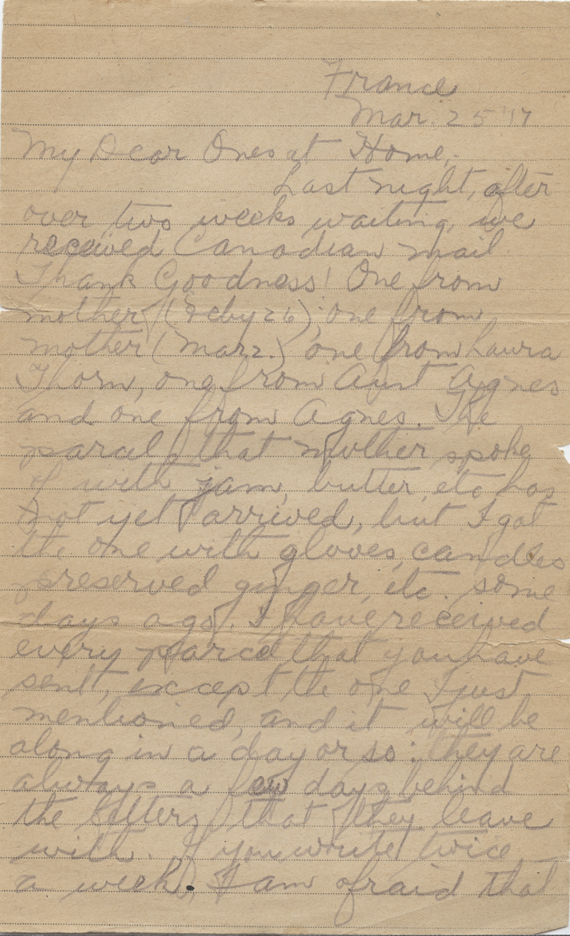 France
Mar. 25 '17
My Dear Ones at Home,
Last night, after
over two weeks waiting, we
received Canadian mail
Thank Goodness! One from
mother (Feby 26), one from
mother (Mar 2.) one from Laura
Thorn, one from Aunt Agnes
and one from Agnes. The
parcel that mother spoke
of with jam, butter, etc has
not yet arrived, but I got
the one with gloves, candles
preserved ginger, etc. some
days ago. I have received
every parcel that you have
sent, except the one I just
mentioned, and it will be
along in a day or so: they are
always a few days behind
the letters that they leave
with. If you write twice
a week. I am afraid that